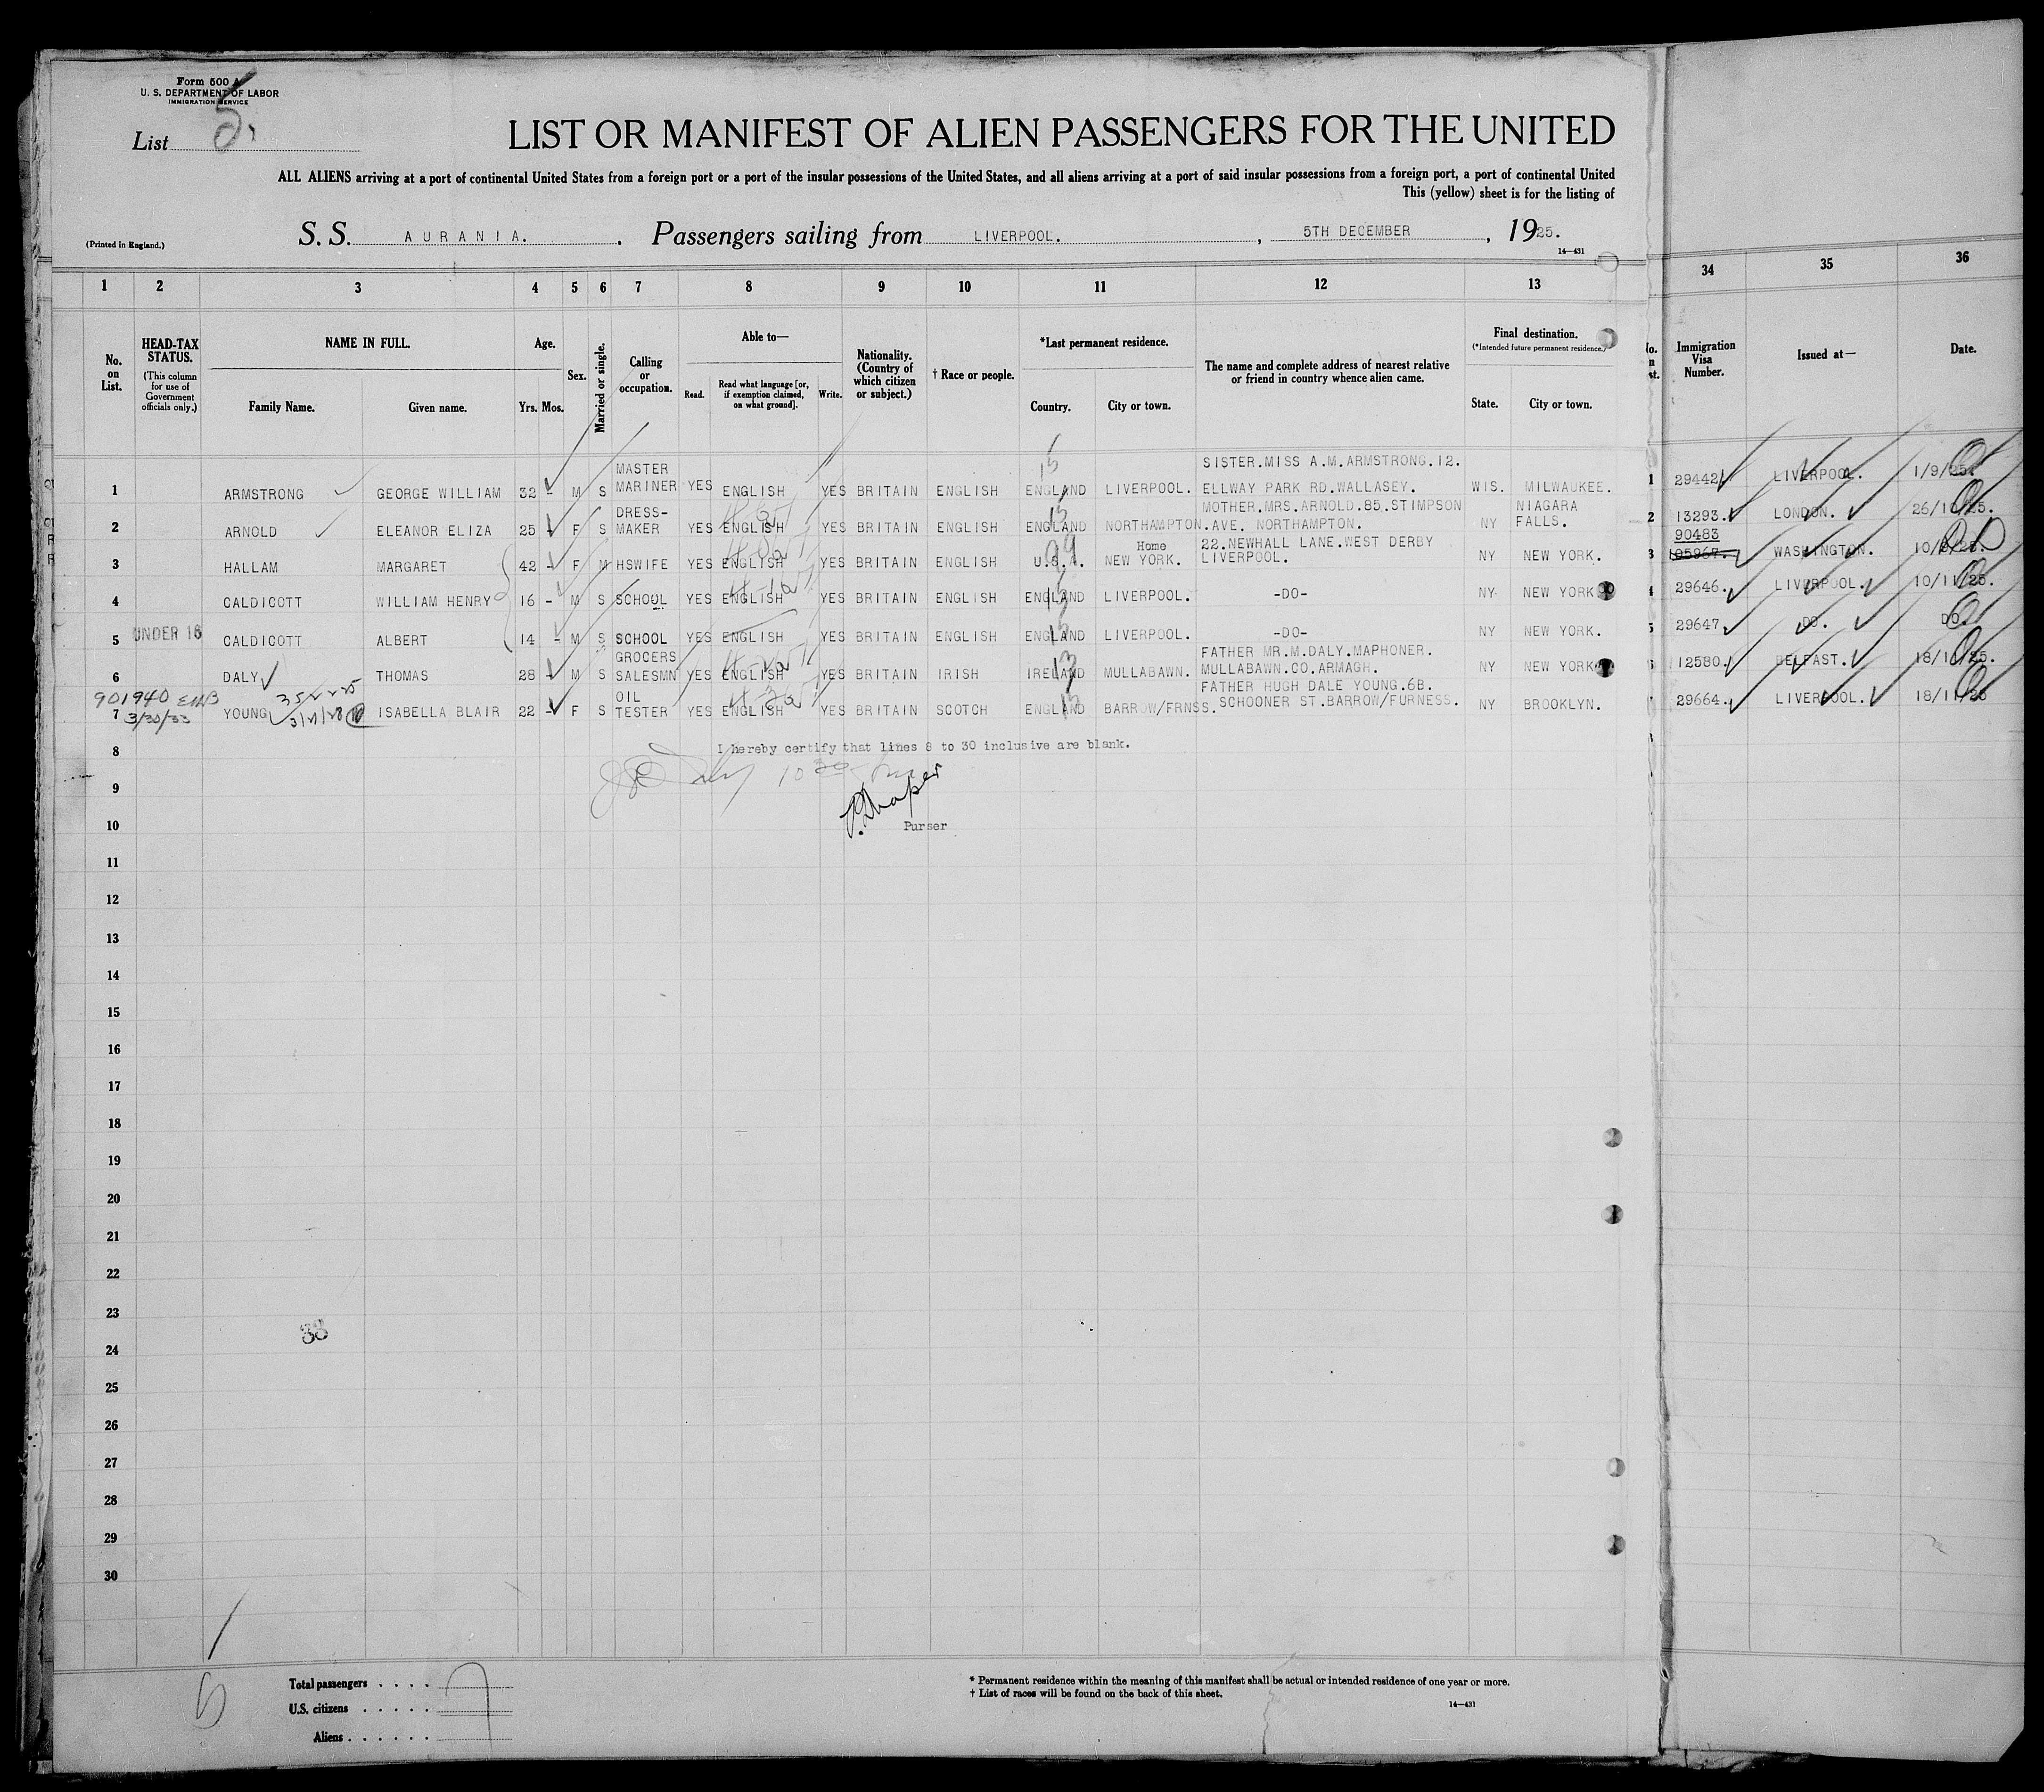 Form 500 A
U. S. DEPARTMENT OF LABOR
IMMIGRATION SERVICE
List 5.
LIST OR MANIFEST OF ALIEN PASSENGERS FOR THE UNITED
ALL ALIENS arriving at a port of continental United States from a foreign port or a port of the insular possessions of the United States, and all aliens arriving at a port of said insular possessions from a foreign port, a port of continental United
This (yellow) sheet is for the listing of
(Printed in England.)
S. S. AURANIA. . Passengers sailing from LIVERPOOL. , 5TH DECEMBER , 1925.
14—431
1 2 3 4 5 6 7 8 9 10 11 12 13 34 35 36
No. on List.
HEAD-TAX STATUS. (This column for use of Government officials only.)
NAME IN FULL. Family Name. Given name.
Age. Yrs. Mos.
Sex.
Married or single.
Calling or occupation.
Able to— Read. Read what language [or, if exemption claimed, on what ground]. Write.
Nationality. (Country of which citizen or subject.)
† Race or people.
*Last permanent residence. Country. City or town.
The name and complete address of nearest relative or friend in country whence alien came.
Final destination. (*Intended future permanent residence.) State. City or town.
Immigration Visa Number.
Issued at—
Date.
1 ARMSTRONG GEORGE WILLIAM 32 - M S MASTER MARINER YES ENGLISH YES BRITAIN ENGLISH ENGLAND LIVERPOOL. SISTER.MISS A.M.ARMSTRONG.12. ELLWAY PARK RD.WALLASEY. WIS. MILWAUKEE. 1 29442 LIVERPOOL. 1/9/25.
2 ARNOLD ELEANOR ELIZA 25 - F S DRESS-MAKER YES ENGLISH YES BRITAIN ENGLISH ENGLAND NORTHAMPTON. MOTHER.MRS.ARNOLD.85.STIMPSON AVE. NORTHAMPTON. NY NIAGARA FALLS. 2 13293. LONDON. 26/1 /25.
3 HALLAM MARGARET 42 - F M HSWIFE YES ENGLISH YES BRITAIN ENGLISH U.S.A. Home NEW YORK. 22.NEWHALL LANE.WEST DERBY LIVERPOOL. NY NEW YORK. 3 90483 WASHINGTON.
4 CALDICOTT WILLIAM HENRY 16 - M S SCHOOL YES ENGLISH YES BRITAIN ENGLISH ENGLAND LIVERPOOL. -DO- NY NEW YORK 29646. LIVERPOOL. 10/11/25.
UNDER 16
5 CALDICOTT ALBERT 14 - M S SCHOOL YES ENGLISH YES BRITAIN ENGLISH ENGLAND LIVERPOOL. -DO- NY NEW YORK. 29647. DO. DO.
6 DALY THOMAS 28 - M S GROCERS SALESMN YES ENGLISH YES BRITAIN IRISH IRELAND MULLABAWN. FATHER MR.M.DALY.MAPHONER. MULLABAWN.CO.ARMAGH. NY NEW YORK 12580. BELFAST. 18/11/25.
901940 EMB 352225
3/30/33
7 YOUNG ISABELLA BLAIR 22 - F S OIL TESTER YES ENGLISH YES BRITAIN SCOTCH ENGLAND BARROW/FRNSS. FATHER HUGH DALE YOUNG.6B. SCHOONER ST.BARROW/FURNESS. NY BROOKLYN. 29664. LIVERPOOL. 18/11/25
8 I hereby certify that lines 8 to 30 inclusive are blank.
9
P. Draper
10 Purser
11
12
13
14
15
16
17
18
19
20
21
22
23
24
25
26
27
28
29
30
Total passengers . . . . 7
U.S. citizens . . . . .
Aliens . . . . . .
* Permanent residence within the meaning of this manifest shall be actual or intended residence of one year or more.
† List of races will be found on the back of this sheet.
14—431